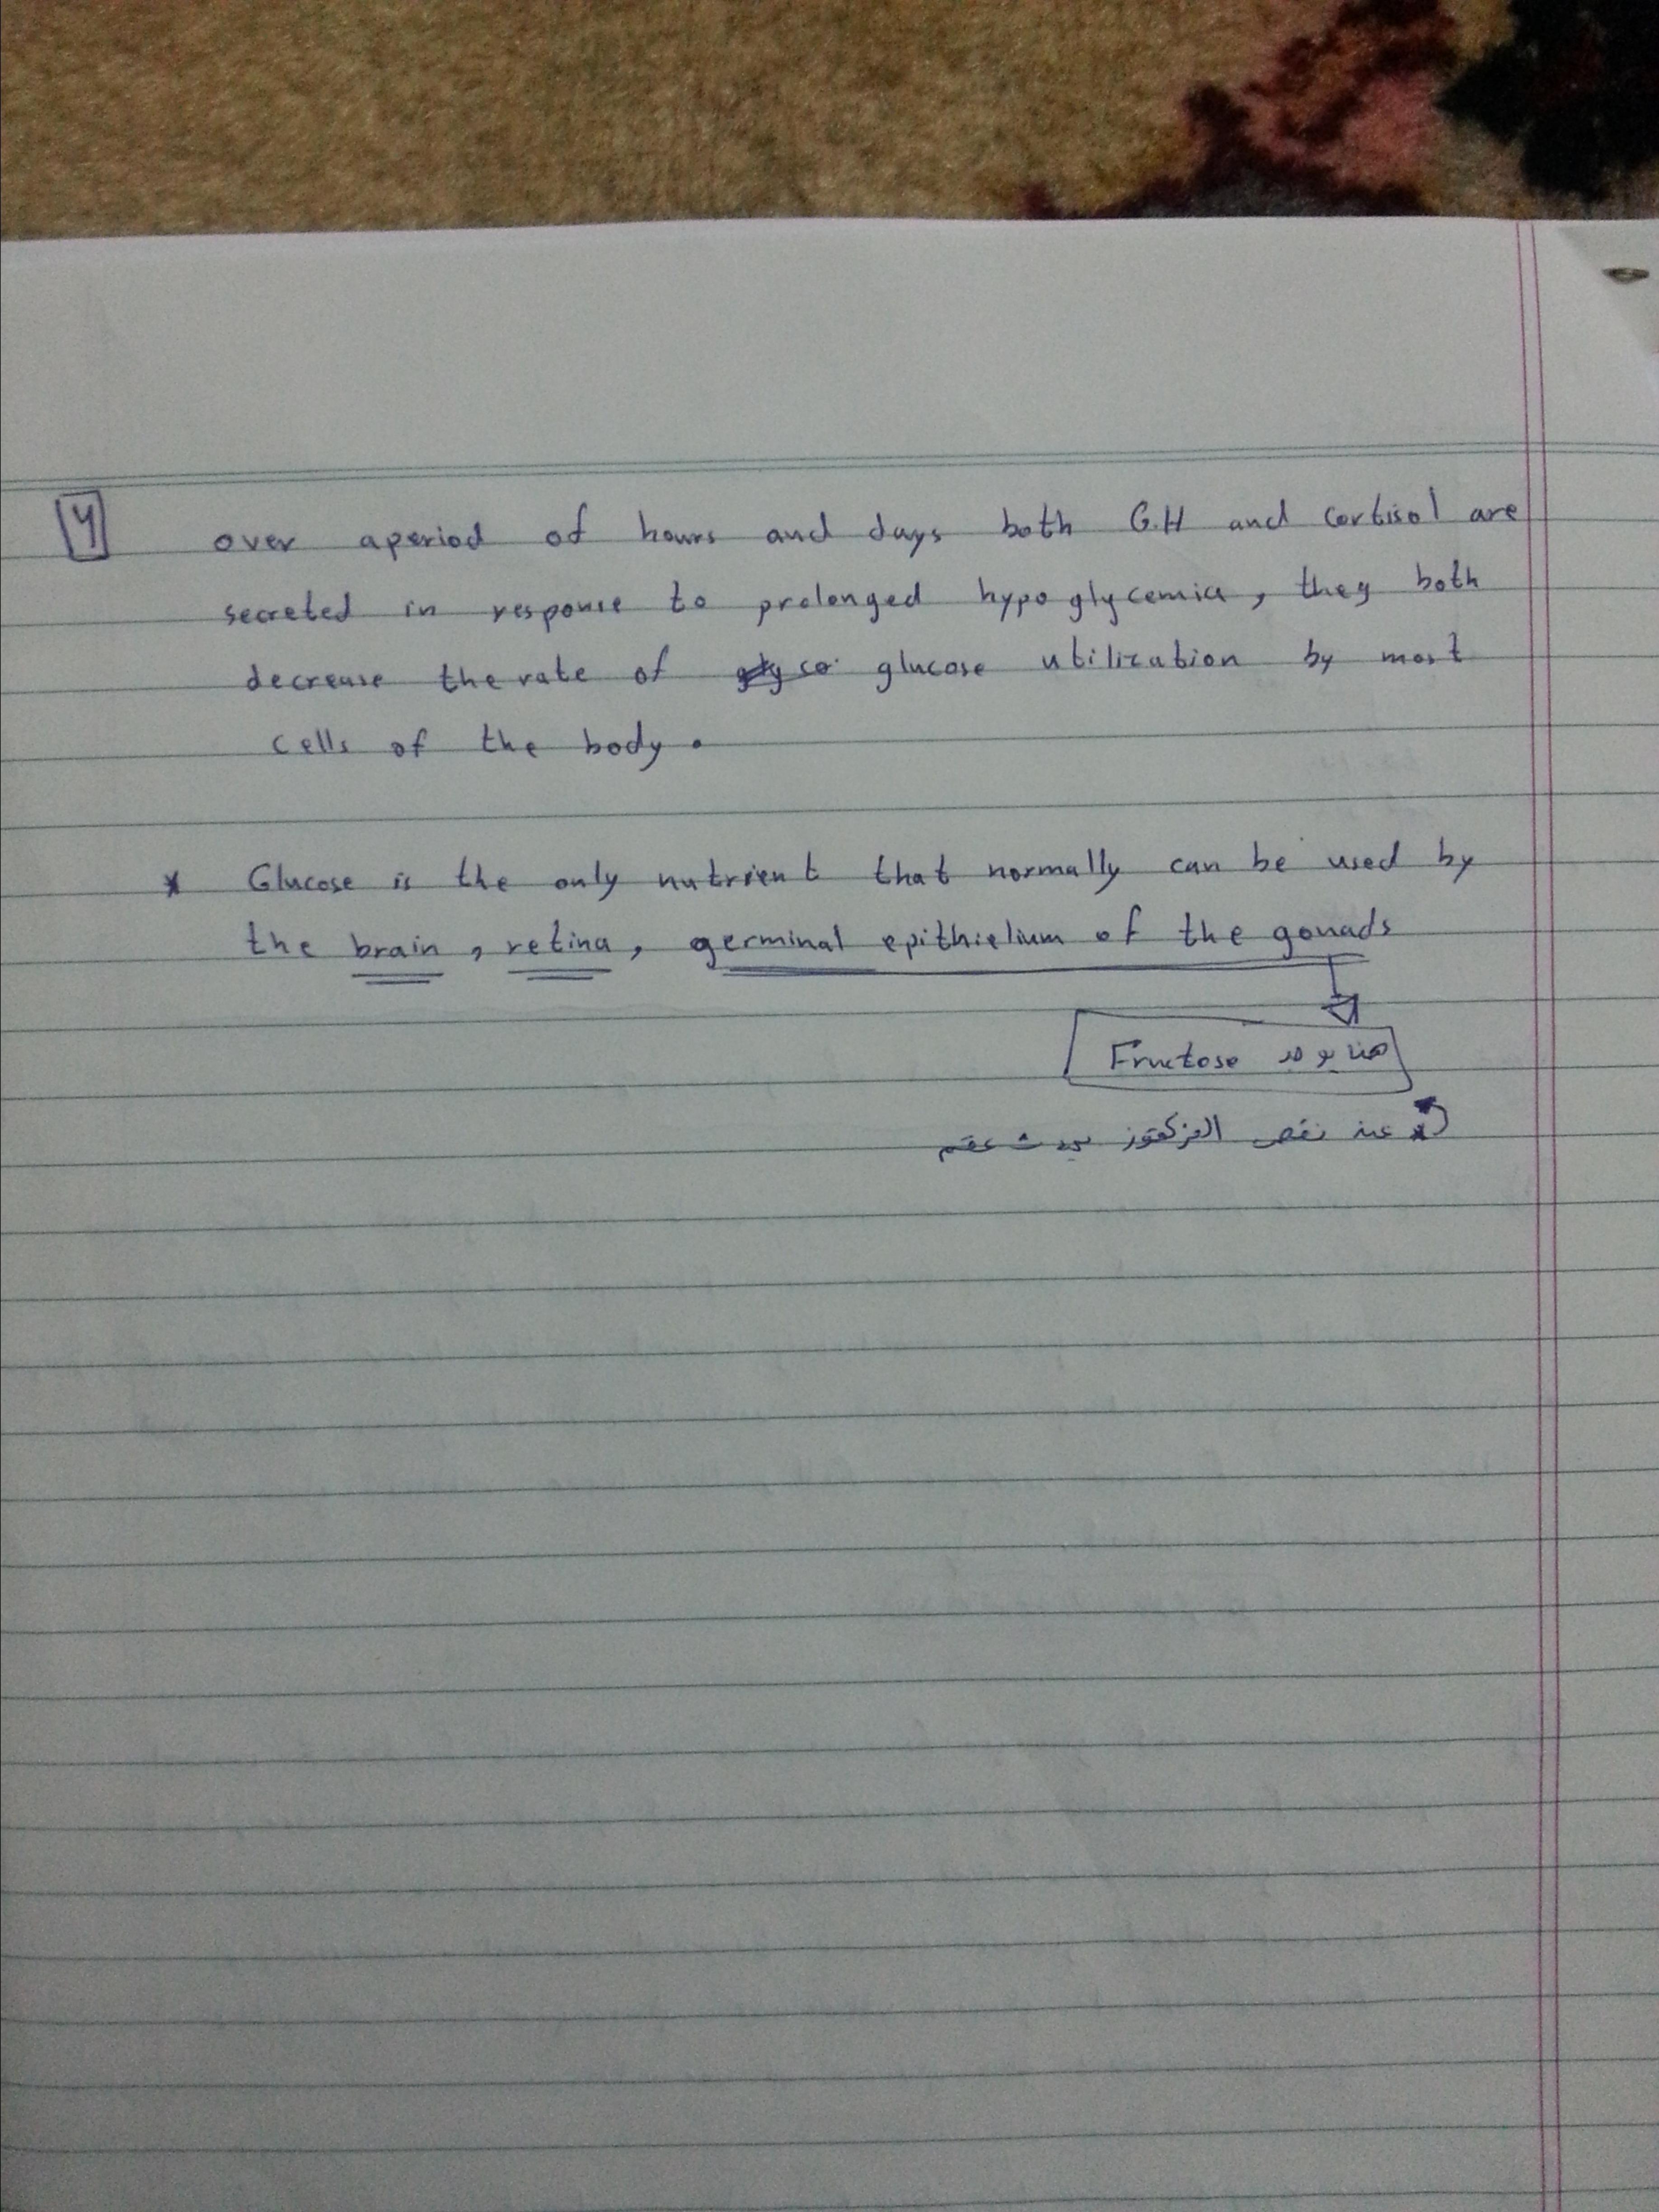 4 over aperiod of hours and days both G.H and cortisol are
secreted in response to prolonged hypoglycemia, they both
decrease the rate of glyco glucose utilization by most
cells of the body.
* Glucose is the only nutrient that normally can be used by
the brain, retina, germinal epithielium of the gonads
هنا يوجد Fructose
* عند نقص الفركتوز يحدث عقم